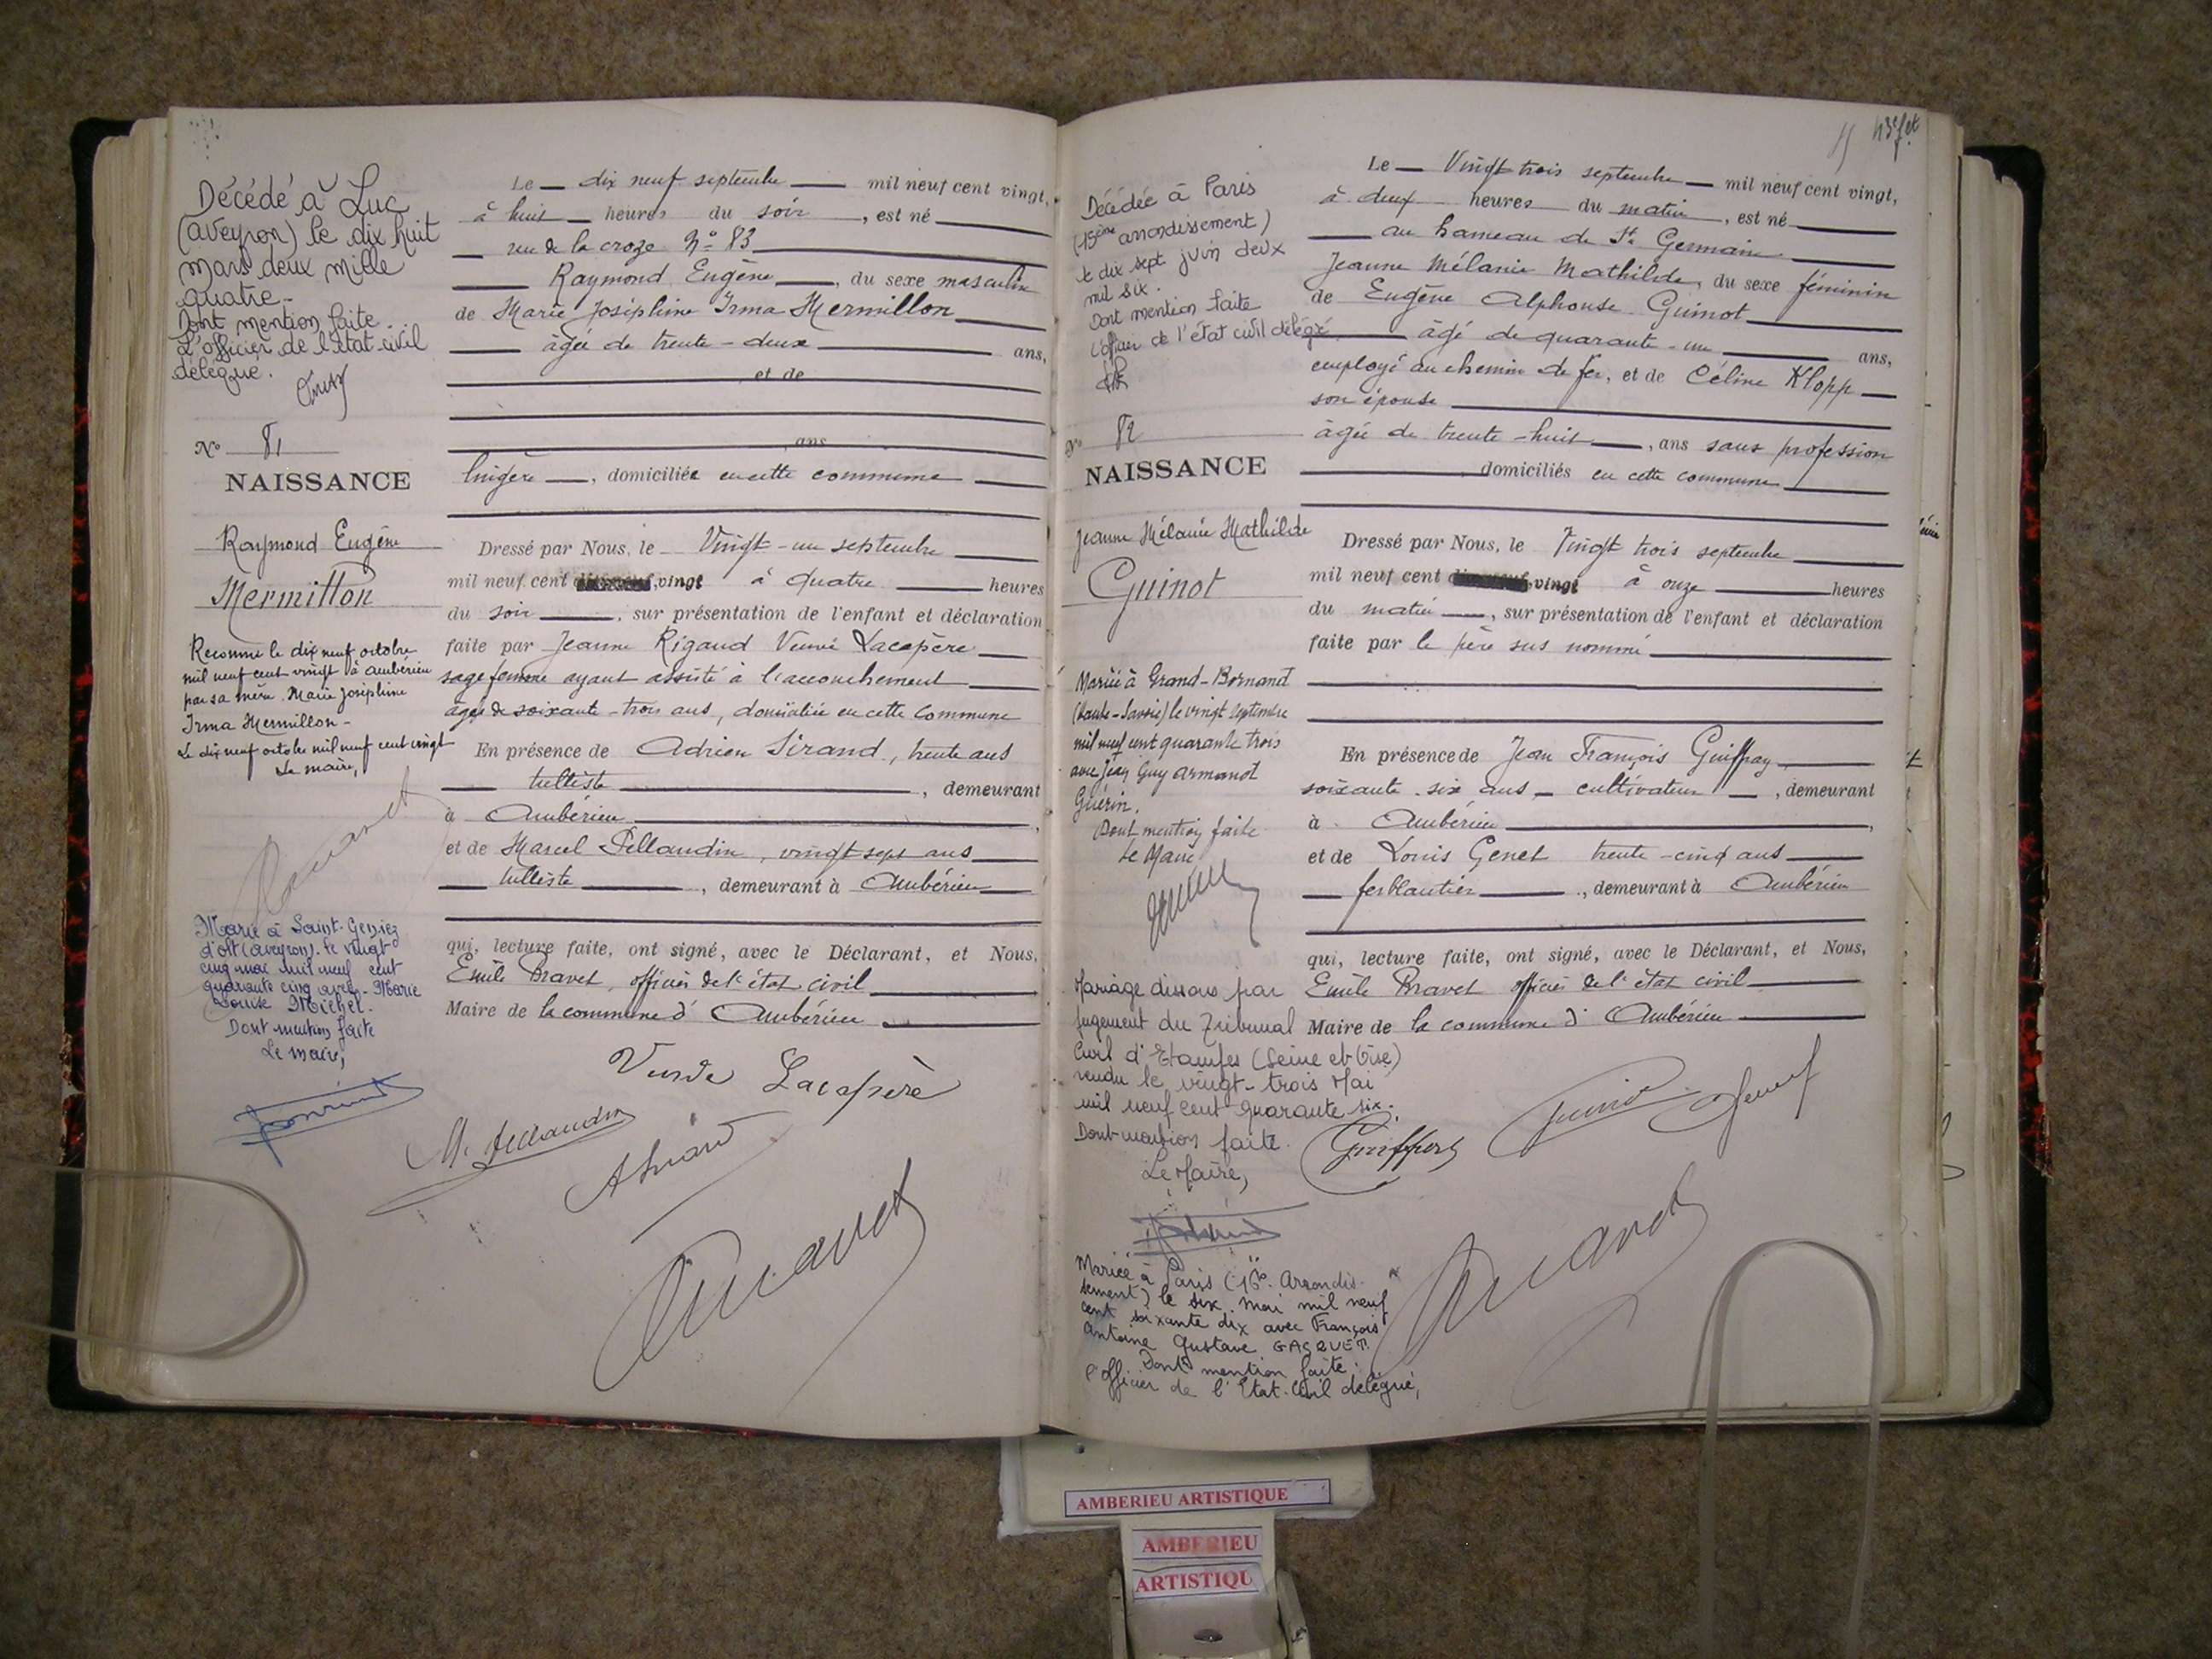 Décédé à Luc
(aveyron) le dix huit
mars deux mille
quatre.
Dont mention faite
L'officier de l'état-civil
délégué.
N° 81
NAISSANCE
Raymond Eugène
Mermillon
Reconnu le dix neuf octobre
mil neuf cent vingt à Ambérieu
par sa mère Marie Joséphine
Irma Mermillon -
Le dix neuf octobre mil neuf cent vingt
Le maire,
Marié à Saint-Geniez
d'olt (aveyron). le vingt
cinq mai mil neuf cent
quarante cinq avec - Marie
Louise Michel.
Dont mention faite
Le maire,
Le dix neuf septembre mil neuf cent vingt,
à huit heures du soir, est né
rue de la croze N° 83
Raymond Eugène, du sexe masculin
de Marie Joséphine Irma Mermillon
âgée de trente-deux ans,
et de
ans
lingère, domiciliée en cette commune
Dressé par Nous, le Vingt-un septembre
mil neuf cent vingt à quatre heures
du soir, sur présentation de l'enfant et déclaration
faite par Jeanne Rigaud Veuve Lacapère
sage femme ayant assisté à l'accouchement
âgée de soixante-trois ans, domiciliée en cette commune
En présence de Adrien Sirand, trente ans
tulliste, demeurant
à Ambérieu,
et de Marcel Pellaudin, vingt sept ans
tulliste, demeurant à Ambérieu
qui, lecture faite, ont signé, avec le Déclarant, et Nous,
Emile Bravet, officier de l'état civil
Maire de la commune d'Ambérieu
Veuve Lacapère
ASirand
43e ft
Décédée à Paris
(15ème arrondissement)
le dix sept juin deux
mil six.
Dont mention faite
L'officier de l'état civil délégué
N° 82
NAISSANCE
Jeanne Mélanie Mathilde
Guinot
Mariée à Grand-Bornand
(Haute-Savoie) le vingt septembre
mil neuf cent quarante trois
avec Jean Guy Armand
Guérin.
Dont mention faite
Le Maire
Mariage dissous par
jugement du Tribunal
Civil d'Etampes (Seine et Oise)
rendu le vingt-trois Mai
mil neuf cent quarante six.
Dont mention faite.
Le Maire,
Mariée à Paris (16e. Arrondis-
sement) le six mai mil neuf
cent soixante dix avec François
Antoine Gustave GASQUET.
Dont mention faite.
l'Officier de l'Etat-Civil délégué,
Le Vingt trois septembre mil neuf cent vingt,
à deux heures du matin, est né
au hameau de St Germain
Jeanne Mélanie Mathilde, du sexe féminin
de Eugène Alphonse Guinot
âgé de quarante-un ans,
employé au chemin de fer, et de Céline Klopp
son épouse
âgée de trente-huit, ans sans profession
domiciliés en cette commune
Dressé par Nous, le Vingt trois septembre
mil neuf cent vingt à onze heures
du matin, sur présentation de l'enfant et déclaration
faite par le père sus nommé
En présence de Jean François Guiffray
soixante-six ans, cultivateur, demeurant
à Ambérieu,
et de Louis Genet trente-cinq ans
ferblantier, demeurant à Ambérieu
qui, lecture faite, ont signé, avec le Déclarant, et Nous,
Emile Bravet officier de l'état civil
Maire de la commune d'Ambérieu
AMBERIEU ARTISTIQUE
AMBERIEU
ARTISTIQU